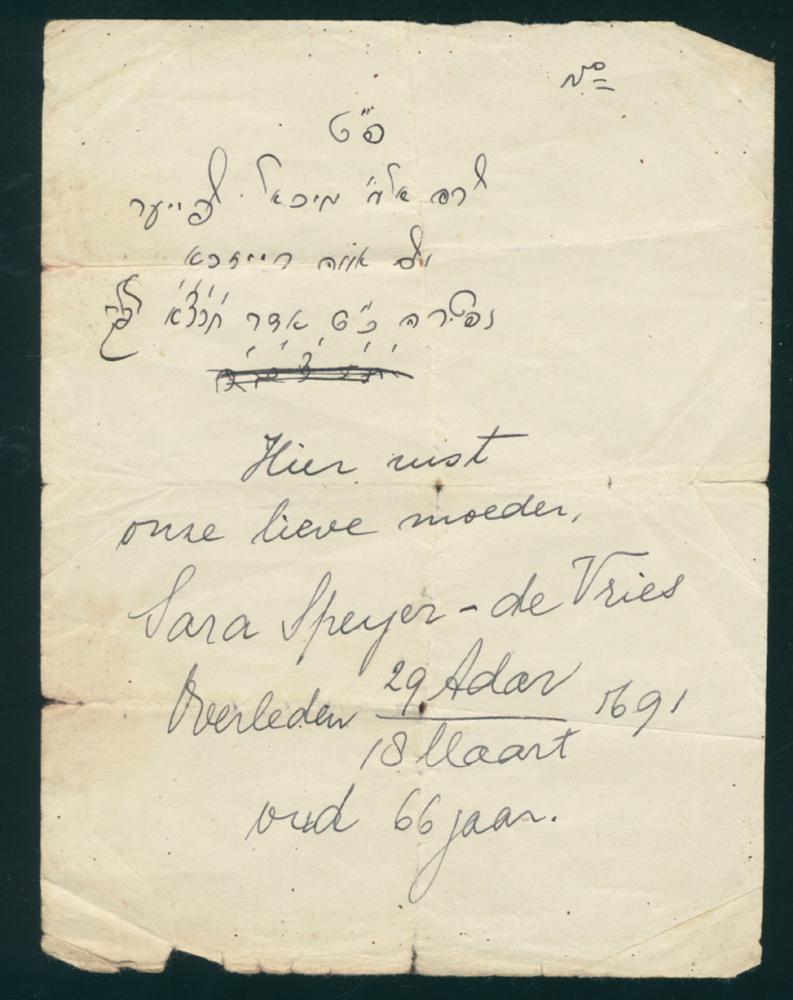 No
פ״ט
שרה אלמ׳ מיכאל שפייער
נפטרה כ״ט אדר תרצ״א לפ״ק
Hier rust
onze lieve moeder,
Sara Speyer - de Vries
Overleden 29 Adar 5691
18 Maart
oud 66 jaar.